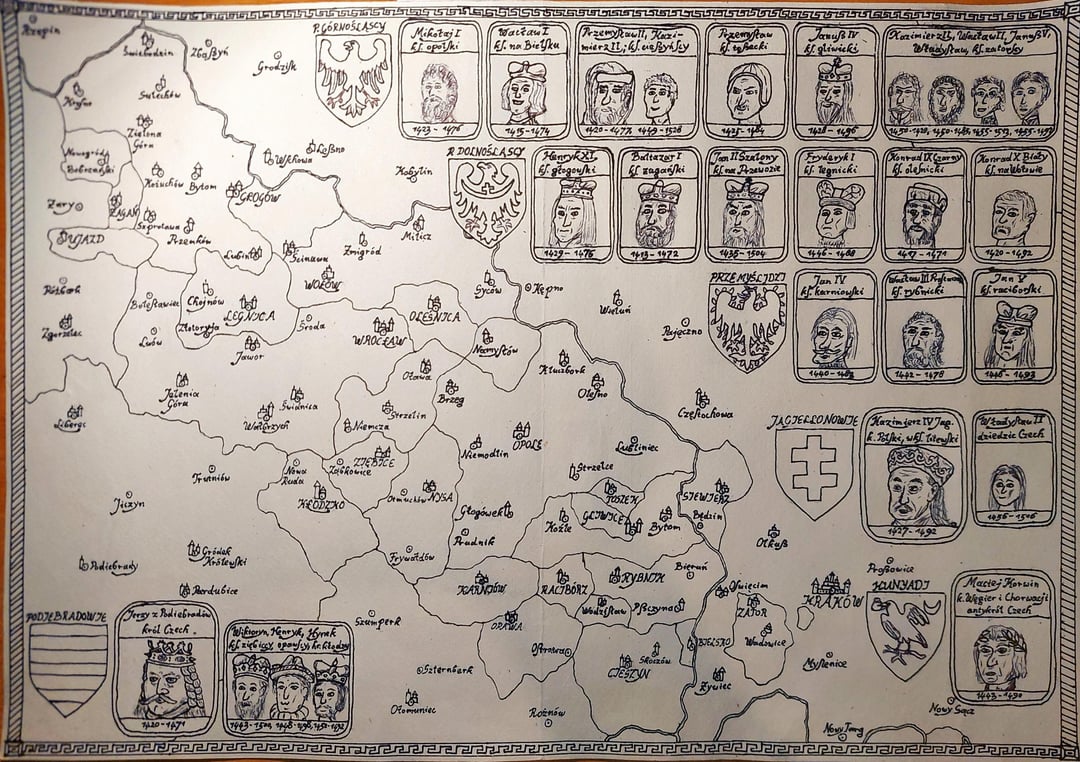 Rzepin
Świebodzin
Zbąszyń
Grodzisk
P. GÓRNOŚLĄSCY
Mikołaj I
kś. opolski
1423 - 1476
Wacław I
kś. na Bielsku
1415 - 1474
Przemysław II, Kazi-
mierz II; kś. cieszyńscy
1420 - 1477
1449 - 1528
Przemysław
kś. tošecki
1425 - 1484
Janusz IV
kś. gliwicki
Kazimierz II, Wacław II, Janusz V,
Władysław, kś. zatorscy
Krosno
Sulechów
Zielona
Góra
Nowogród
Bobrzański
Wschowa
Leszno
Kobylin
P. DOLNOŚLĄSCY
Henryk XI
kś. głogowski
1429 - 1476
Baltazar I
kś. żagański
1413 - 1472
Jan II Szalony
kś. na Przewozie
1435 - 1504
Fryderyk I
kś. legnicki
1446 - 1488
Konrad IX Czarny
kś. oleśnicki
1417 - 1471
Konrad X Biały
kś. na Wołowie
1420 - 1492
Kożuchów
Bytom
GŁOGÓW
Żary
ŻAGAŃ
Szprotawa
Przemków
UJAZD
Lubin
Ścinawa
Żmigród
Milicz
WOŁÓW
Rózbark
Bolesławiec
Chojnów
LEGNICA
Złotoryja
Zgorzelec
Lwów
Jawor
Środa
WROCŁAW
OLEŚNICA
Syców
Kępno
Wieluń
Pajęczno
PRZEMYŚLIDZI
Jan IV
kś. karniowski
Wacław III
kś. rybnicki
1442 - 1478
Jan V
kś. raciborski
Namysłów
Kluczbork
Oława
Brzeg
Olesno
Częstochowa
Jelenia
Góra
Świdnica
Wałbrzych
Strzelin
Niemcza
Liberec
Trutnów
Nowa
Ruda
ZIĘBICE
Ząbkowice
KŁODZKO
Otmuchów
NYSA
Niemodlin
OPOLE
Lubliniec
Strzelce
TOSZEK
SIEWIERZ
JAGIELLONOWIE
Kazimierz IV Jag.
k. Polski, wkś. litewski
1427 - 1492
Władysław II
dziedzic Czech
1456 - 1516
Jiczyn
Głogówek
Koźle
GLIWICE
Bytom
Będzin
Olkusz
Prudnik
Frywałdów
Gródek
Królewski
Podiebrady
Pardubice
KARNIÓW
RACIBÓRZ
RYBNIK
Bieruń
Oświęcim
ZATOR
KRAKÓW
Proszowice
HUNYADI
Maciej Korwin
k. Węgier i Chorwacji
antykról Czech
1443 - 1490
PODIEBRADOWIE
Jerzy z Podiebradów
król Czech
1420 - 1471
Wiktoryn, Henryk, Hynek
Szumperk
OPAWA
Wodzisław
Pszczyna
Wadowice
Ostrawa
Skoczów
CIESZYN
BIELSKO
Żywiec
Myślenice
Szternberk
Ołomuniec
Rożnów
Nowy Targ
Nowy Sącz